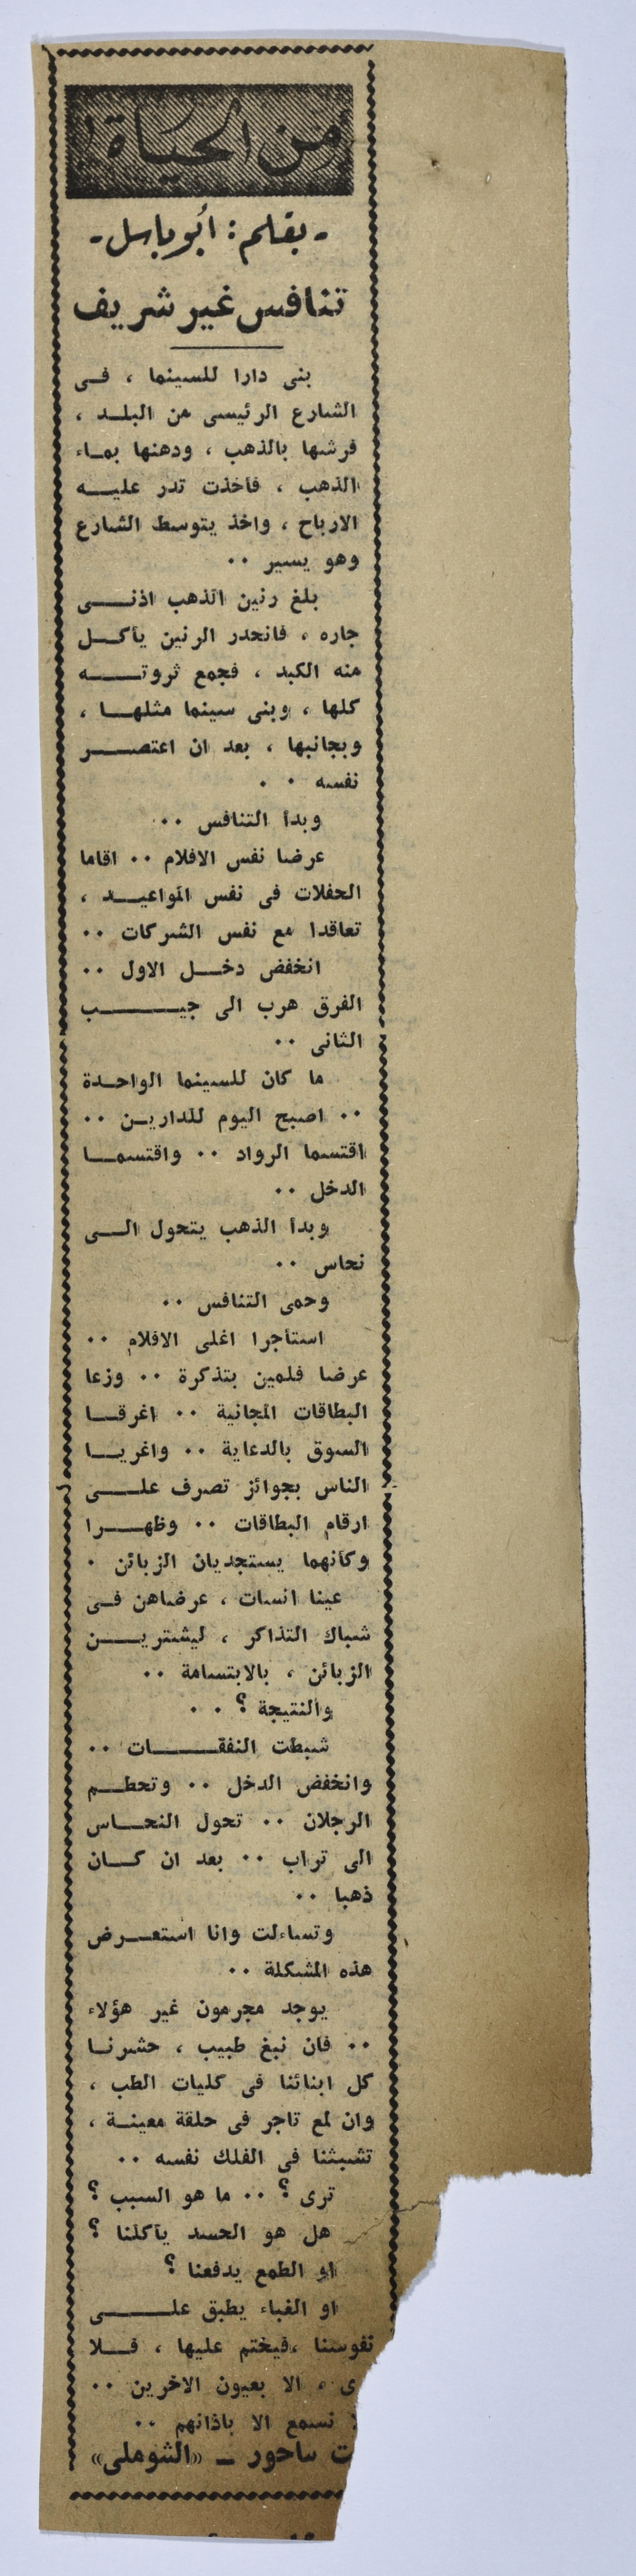 من الحياة!
- بقلم : أبو باسل -
تنافس غير شريف
بنى دارا للسينما ، فى
الشارع الرئيسى من البلد ،
فرشها بالذهب ، ودهنها بماء
الذهب ، فأخذت تدر عليه
الارباح ، واخذ يتوسط الشارع
وهو يسير ..
بلغ رنين الذهب اذنى
جاره ، فانحدر الرنين يأكل
منه الكبد ، فجمع ثروته
كلها ، وبنى سينما مثلها ،
وبجانبها ، بعد ان اعتصر
نفسه . .
وبدأ التنافس ..
عرضا نفس الافلام .. اقاما
الحفلات فى نفس المواعيد ،
تعاقدا مع نفس الشركات ..
انخفض دخل الاول ..
الفرق هرب الى جيب
الثانى ..
ما كان للسينما الواحدة
.. اصبح اليوم للدارين ..
اقتسما الرواد .. واقتسما
الدخل ..
وبدأ الذهب يتحول الى
نحاس ..
وحمى التنافس ..
استأجرا اغلى الافلام ..
عرضا فلمين بتذكرة .. وزعا
البطاقات المجانية .. اغرقا
السوق بالدعاية .. واغريا
الناس بجوائز تصرف على
ارقام البطاقات .. وظهرا
وكأنهما يستجديان الزبائن .
عينا انسات ، عرضاهن فى
شباك التذاكر ، ليشترين
الزبائن ، بالابتسامة ..
والنتيجة ؟ . .
شبطت النفقات ..
وانخفض الدخل .. وتحطم
الرجلان .. تحول النحاس
الى تراب .. بعد ان كان
ذهبا ..
وتساءلت وانا استعرض
هذه المشكلة ..
يوجد مجرمون غير هؤلاء
.. فان نبغ طبيب ، حشرنا
كل ابنائنا فى كليات الطب ،
وان لمع تاجر فى حلقة معينة ،
تشبثنا فى الفلك نفسه ..
ترى ؟ .. ما هو السبب ؟
هل هو الحسد يأكلنا ؟
او الطمع يدفعنا ؟
او الغباء يطبق على
نفوسنا ،فيختم عليها ، فلا
ى ، الا بعيون الاخرين ..
نسمع الا باذانهم ..
ت ساحور - «الشوملى»